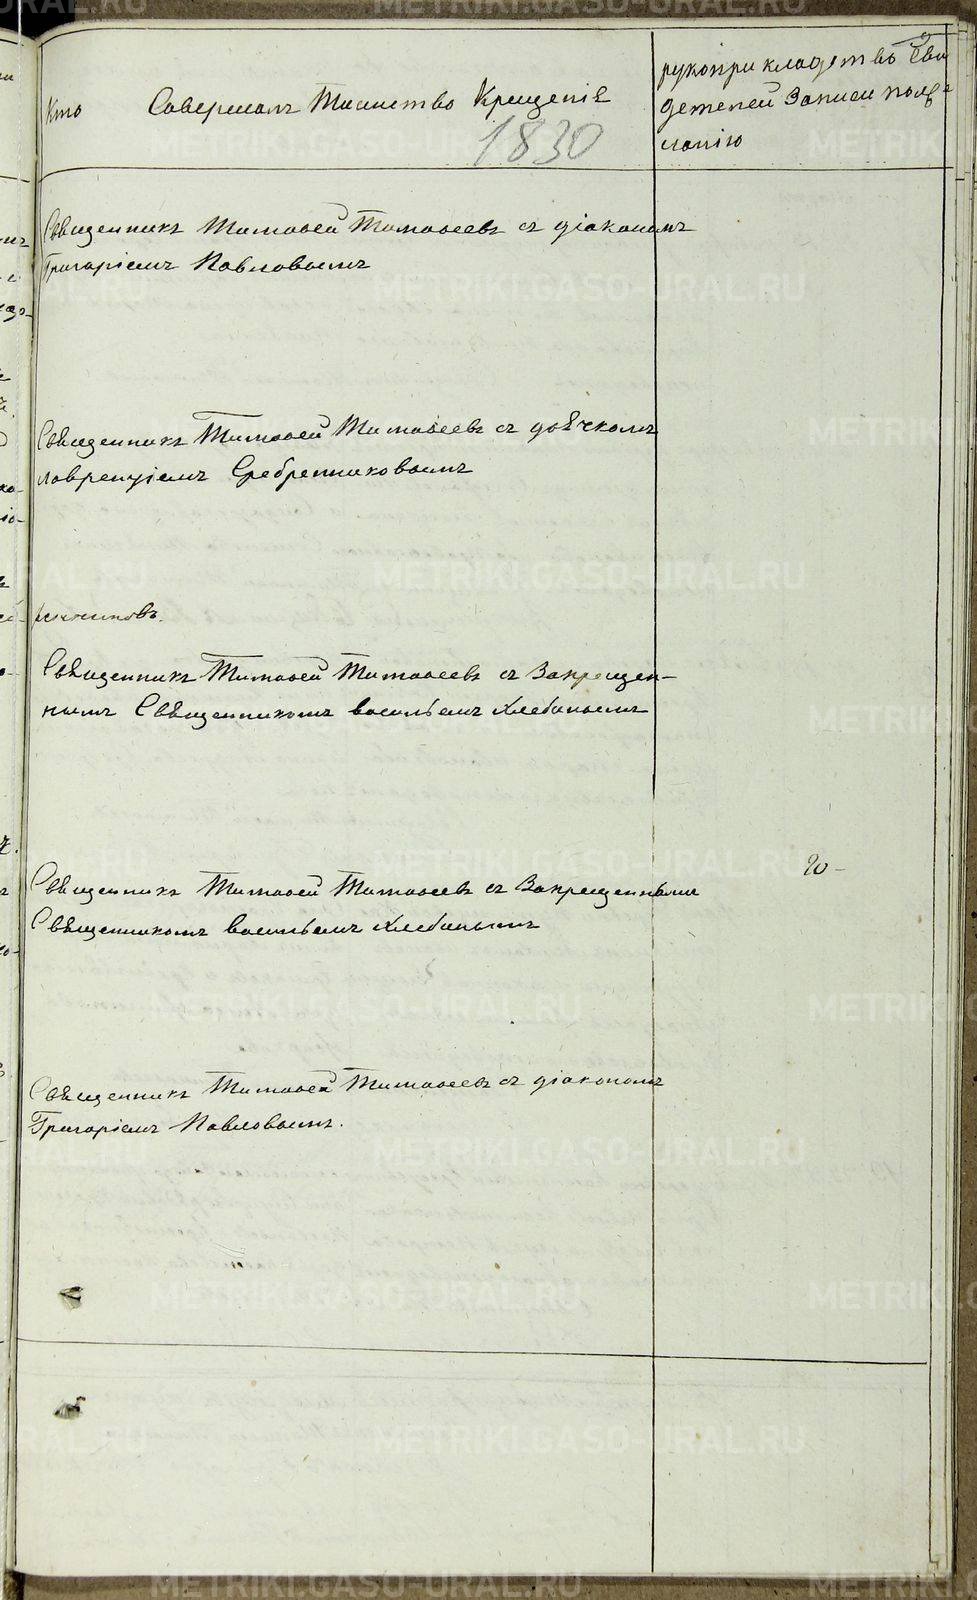 Кто Совершалъ Таинство Крещенія
1830
рукоприкладство Сви
детелей Записи поже
ланію
Священникъ Тимофей Тимофеевъ съ діакономъ
Григоріемъ Павловымъ
Священникъ Тимофей Тимофеевъ съ дьячкомъ
Лаврентіемъ Сребренниковымъ
Священникъ Тимофей Тимофеевъ съ Запрещен-
нымъ Священникомъ Васильемъ Хлебинымъ
20-
Священникъ Тимофей Тимофеевъ съ Запрещеннымъ
Священникомъ Васильемъ Хлебинымъ
Священникъ Тимофей Тимофеевъ съ діакономъ
Григоріемъ Павловымъ.
METRIKI.GASO-URAL.RU